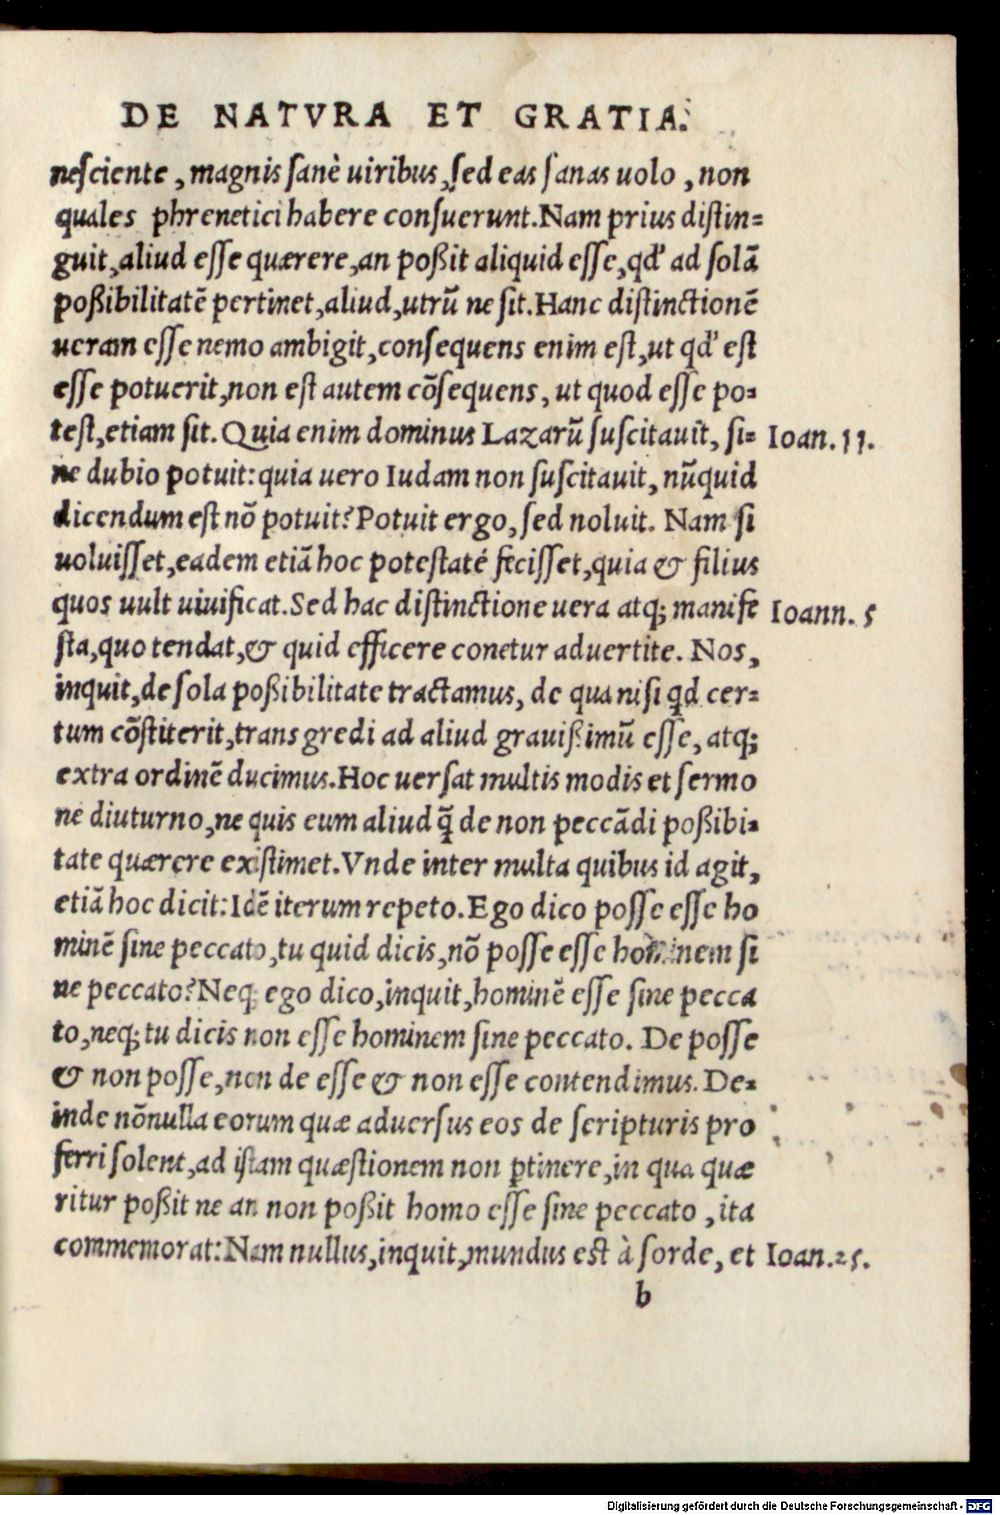 DE NATVRA ET GRATIA.
neſciente, magnis ſanè uiribus, ſed eas ſanas uolo, non
quales phrenetici habere conſuerunt. Nam prius diſtin=
guit, aliud eſſe quærere, an poßit aliquid eſſe, qd' ad ſolã
poßibilitatẽ pertinet, aliud, utrũ ne ſit. Hanc diſtinctionẽ
ueram eſſe nemo ambigit, conſequens enim eſt, ut qd' eſt
eſſe potuerit, non eſt autem cõſequens, ut quod eſſe po=
teſt, etiam ſit. Quia enim dominus Lazarũ ſuſcitauit, ſi= Ioan. 11.
ne dubio potuit: quia uero Iudam non ſuſcitauit, nũquid
dicendum eſt nõ potuit? Potuit ergo, ſed noluit. Nam ſi
uoluiſſet, eadem etiã hoc poteſtaté feciſſet, quia & filius
quos uult uiuificat. Sed hac diſtinctione uera atq; manife Ioann. 5
ſta, quo tendat, & quid efficere conetur aduertite. Nos,
inquit, de ſola poßibilitate tractamus, de qua niſi qd cer=
tum cõſtiterit, transgredi ad aliud grauißimũ eſſe, atq;
extra ordinẽ ducimus. Hoc uerſat multis modis et ſermo
ne diuturno, ne quis eum aliud q̃ de non peccãdi poßibi=
tate quærere exiſtimet. Vnde inter multa quibus id agit,
etiã hoc dicit: Idẽ iterum repeto. Ego dico poſſe eſſe ho
minẽ ſine peccato, tu quid dicis, nõ poſſe eſſe hominem ſi
ne peccato? Neq; ego dico, inquit, hominẽ eſſe ſine pecca
to, neq; tu dicis non eſſe hominem ſine peccato. De poſſe
& non poſſe, non de eſſe & non eſſe contendimus. De=
inde nõnulla eorum quæ aduerſus eos de ſcripturis pro
ferri ſolent, ad iſtam quæſtionem non ꝑtinere, in qua quæ
ritur poßit ne an non poßit homo eſſe ſine peccato, ita
commemorat: Nam nullus, inquit, mundus eſt à ſorde, et Ioan. 25.
b
Digitalisierung gefördert durch die Deutsche Forschungsgemeinschaft - DFG